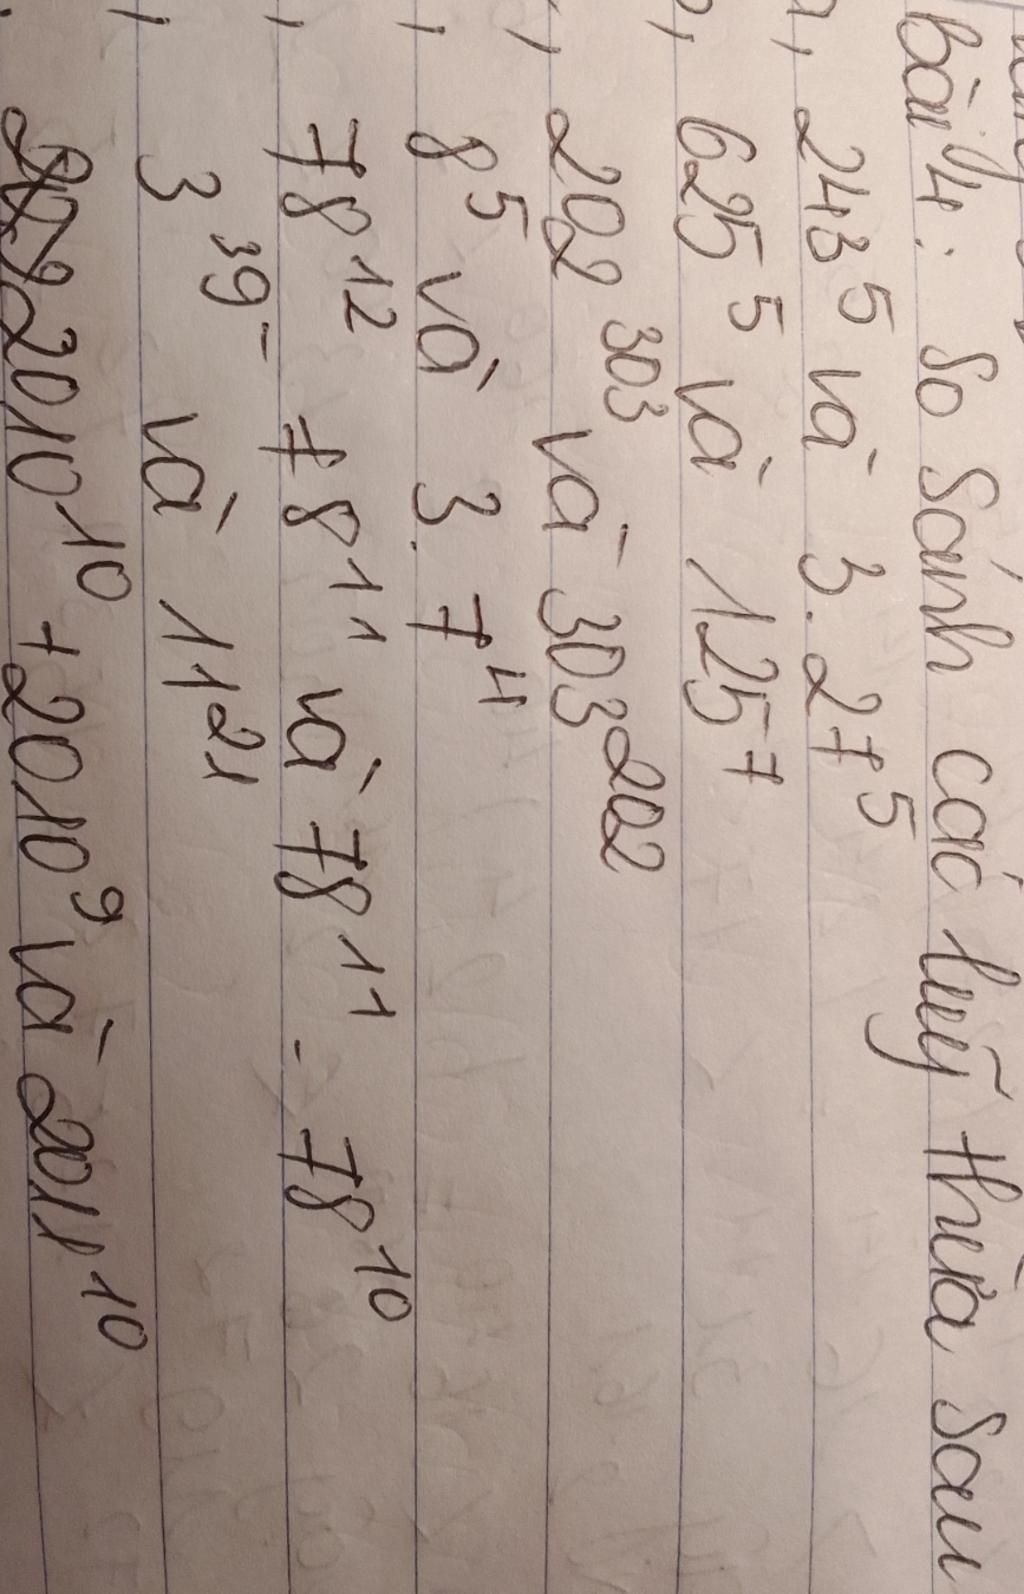 bài 4: So sánh các luỹ thừa sau
a, 243⁵ và 3.27⁵
b, 625⁵ và 125⁷
, 202³⁰³ và 303²⁰²
, 8⁵ và 3.7⁴
, 78¹² - 78¹¹ và 78¹¹ - 78¹⁰
, 3³⁹ và 11²¹
2010¹⁰ + 2010⁹ và 2011¹⁰